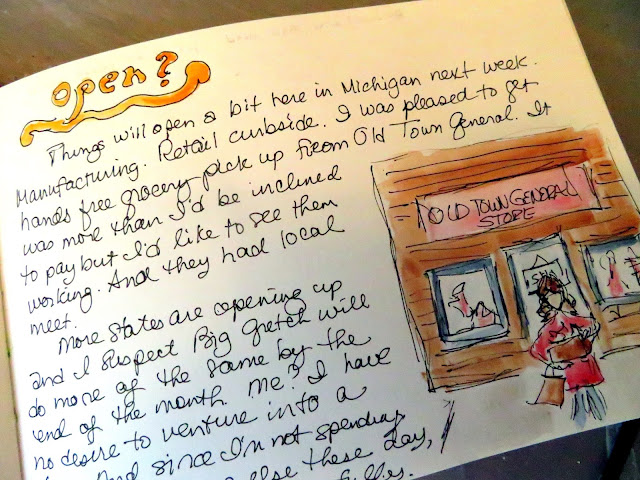 open?
Things will open a bit here in Michigan next week.
Manufacturing. Retail curbside. I was pleased to get
hands free grocery pick up from Old Town General. It
was more than I'd be inclined
to pay but I'd like to see them
working. And they had local
meet.
More states are opening up
and I suspect Big Gretch will
do more of the same by the
end of the month. Me? I have
no desire to venture into a
And since I'm not spending
else these days,
OLD TOWN GENERAL
STORE